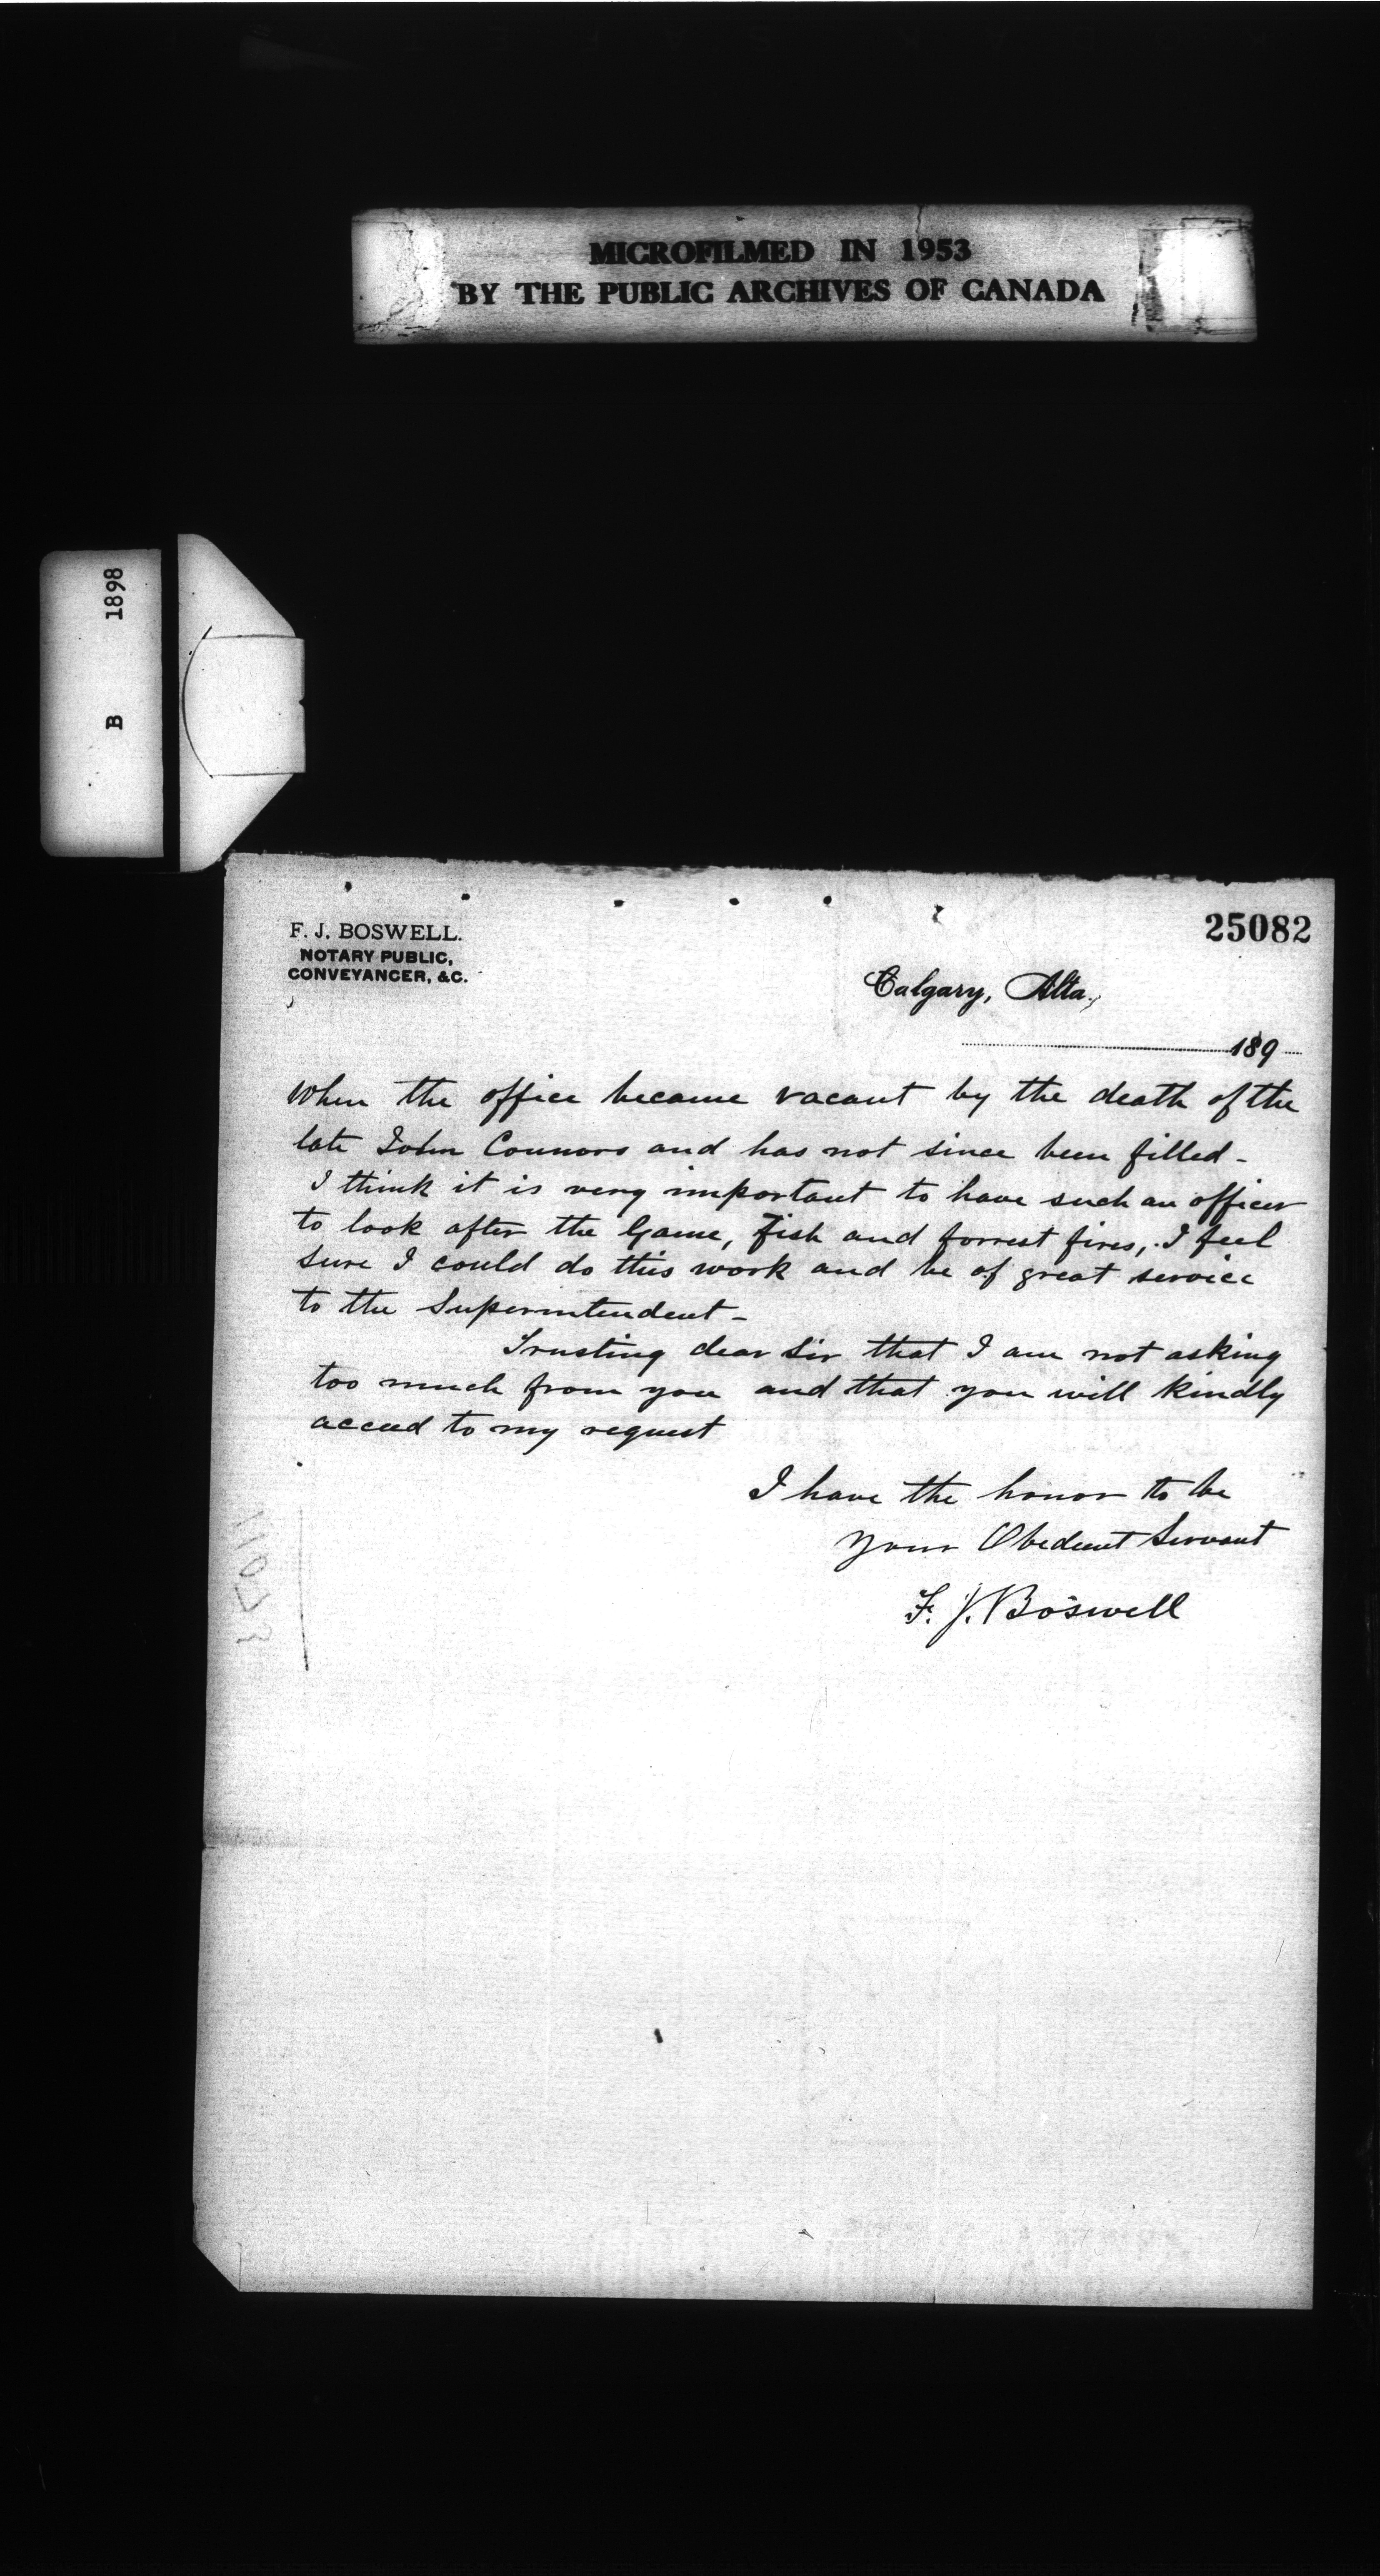 MICROFILMED IN 1953
BY THE PUBLIC ARCHIVES OF CANADA
B 1898
25082
F. J. BOSWELL.
NOTARY PUBLIC,
CONVEYANCER, &C.
Calgary, Alta.,
189
When the office became vacant by the death of the
late John Connors and has not since been filled -
I think it is very important to have such an officer
to look after the Game, Fish and forrest fires, I feel
sure I could do this work and be of great service
to the Superintendent -
Trusting dear Sir that I am not asking
too much from you and that you will kindly
acceed to my request
I have the honor to be
Your Obedient Servant
F. J. Boswell